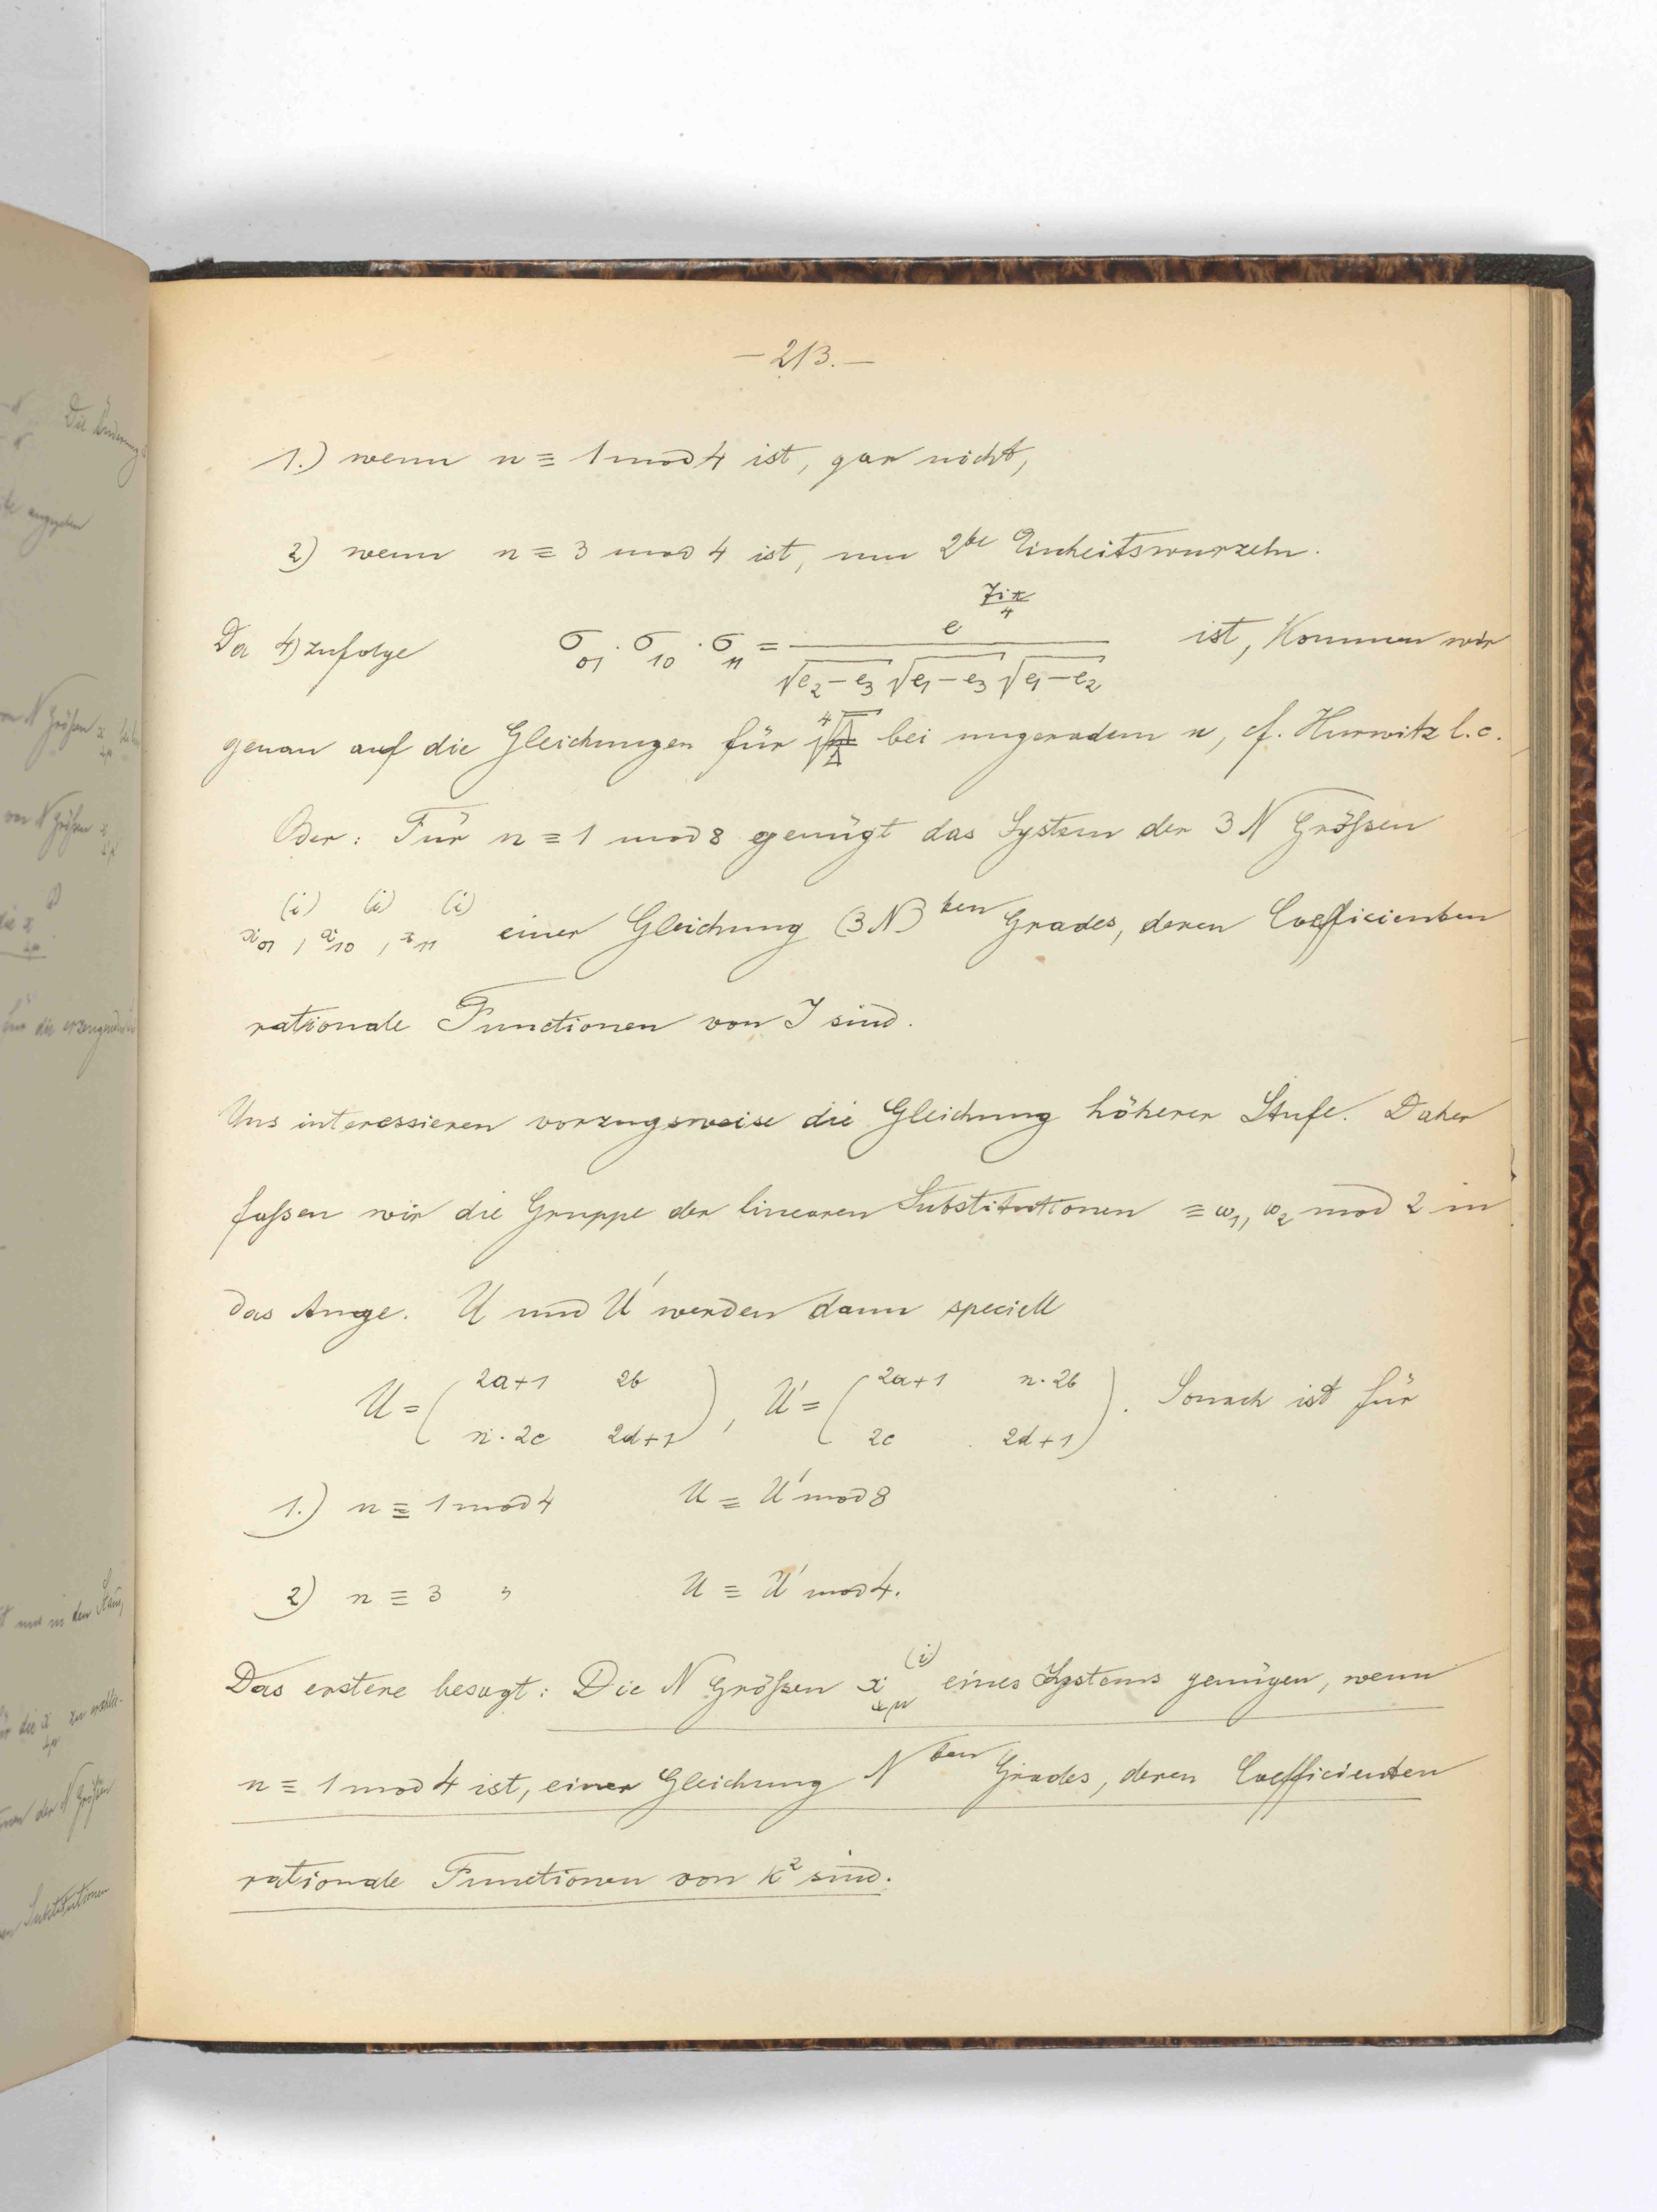 — 213. —
1.) wenn n ≡ 1 mod 4 ist, gar nicht,
2) wenn n ≡ 3 mod 4 ist, um 2te Einheitswurzeln.
Da 4) zufolge σ₀₁ · σ₁₀ · σ₁₁ = e^{7iπ/4} / (√(e₂−e₃) √(e₁−e₃) √(e₁−e₂)) ist, kommen wir
genau auf die Gleichungen für ⁴√Δ bei ungeradem n, cf. Hurwitz l.c.
Oder: Für n ≡ 1 mod 8 genügt das System der 3N Größen
x₀₁^{(i)}, x₁₀^{(i)}, x₁₁^{(i)} einer Gleichung (3N)ten Grades, deren Coefficienten
rationale Functionen von J sind.
Uns interessieren vorzugsweise die Gleichung höherer Stufe. Daher
faßen wir die Gruppe der linearen Substitutionen ≡ ω₁, ω₂ mod 2 in
das Auge. U und U′ werden dann speciell
U = (2a+1 2b / n·2c 2d+1), U′ = (2a+1 n·2b / 2c 2d+1). Sonach ist für
1.) n ≡ 1 mod 4 U ≡ U′ mod 8
2) n ≡ 3 " U ≡ U′ mod 4.
Das erstere besagt: Die N Größen x_{λμ}^{(i)} eines Systems genügen, wenn
n ≡ 1 mod 4 ist, einer Gleichung Nten Grades, deren Coefficienten
rationale Functionen von k² sind.